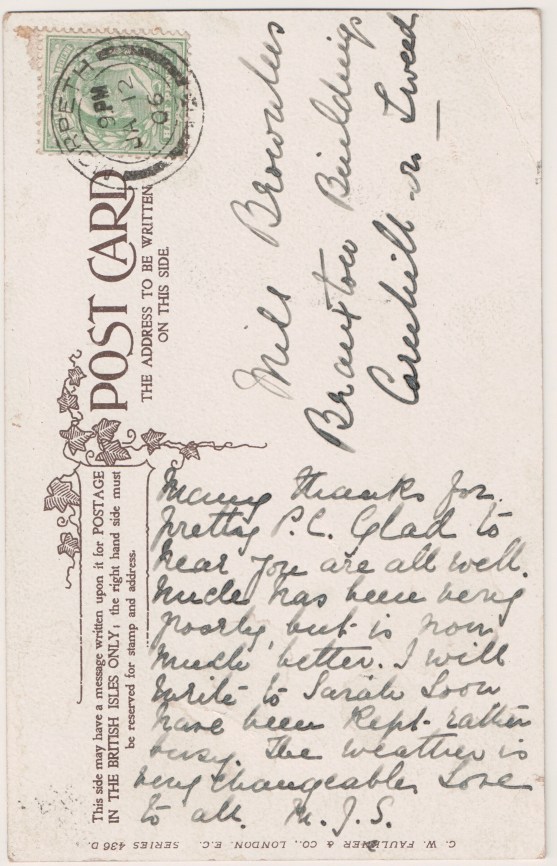 MORPETH
9 PM
JA 12
06
POST CARD
THE ADDRESS TO BE WRITTEN
ON THIS SIDE.
Miss Brownlees
Branxton Buildings
Cornhill on Tweed
This side may have a message written upon it for POSTAGE
IN THE BRITISH ISLES ONLY; the right hand side must
be reserved for stamp and address.
Many thanks for
pretty P.C. Glad to
hear you are all well.
has been very
poorly, but is now
much better. I will
write to Sarah Soon
have been Kept rather
busy. The weather is
very changeable, Love
to all. M.J.S.
C. W. FAULKNER & CO., LONDON, E.C. SERIES 436 D.